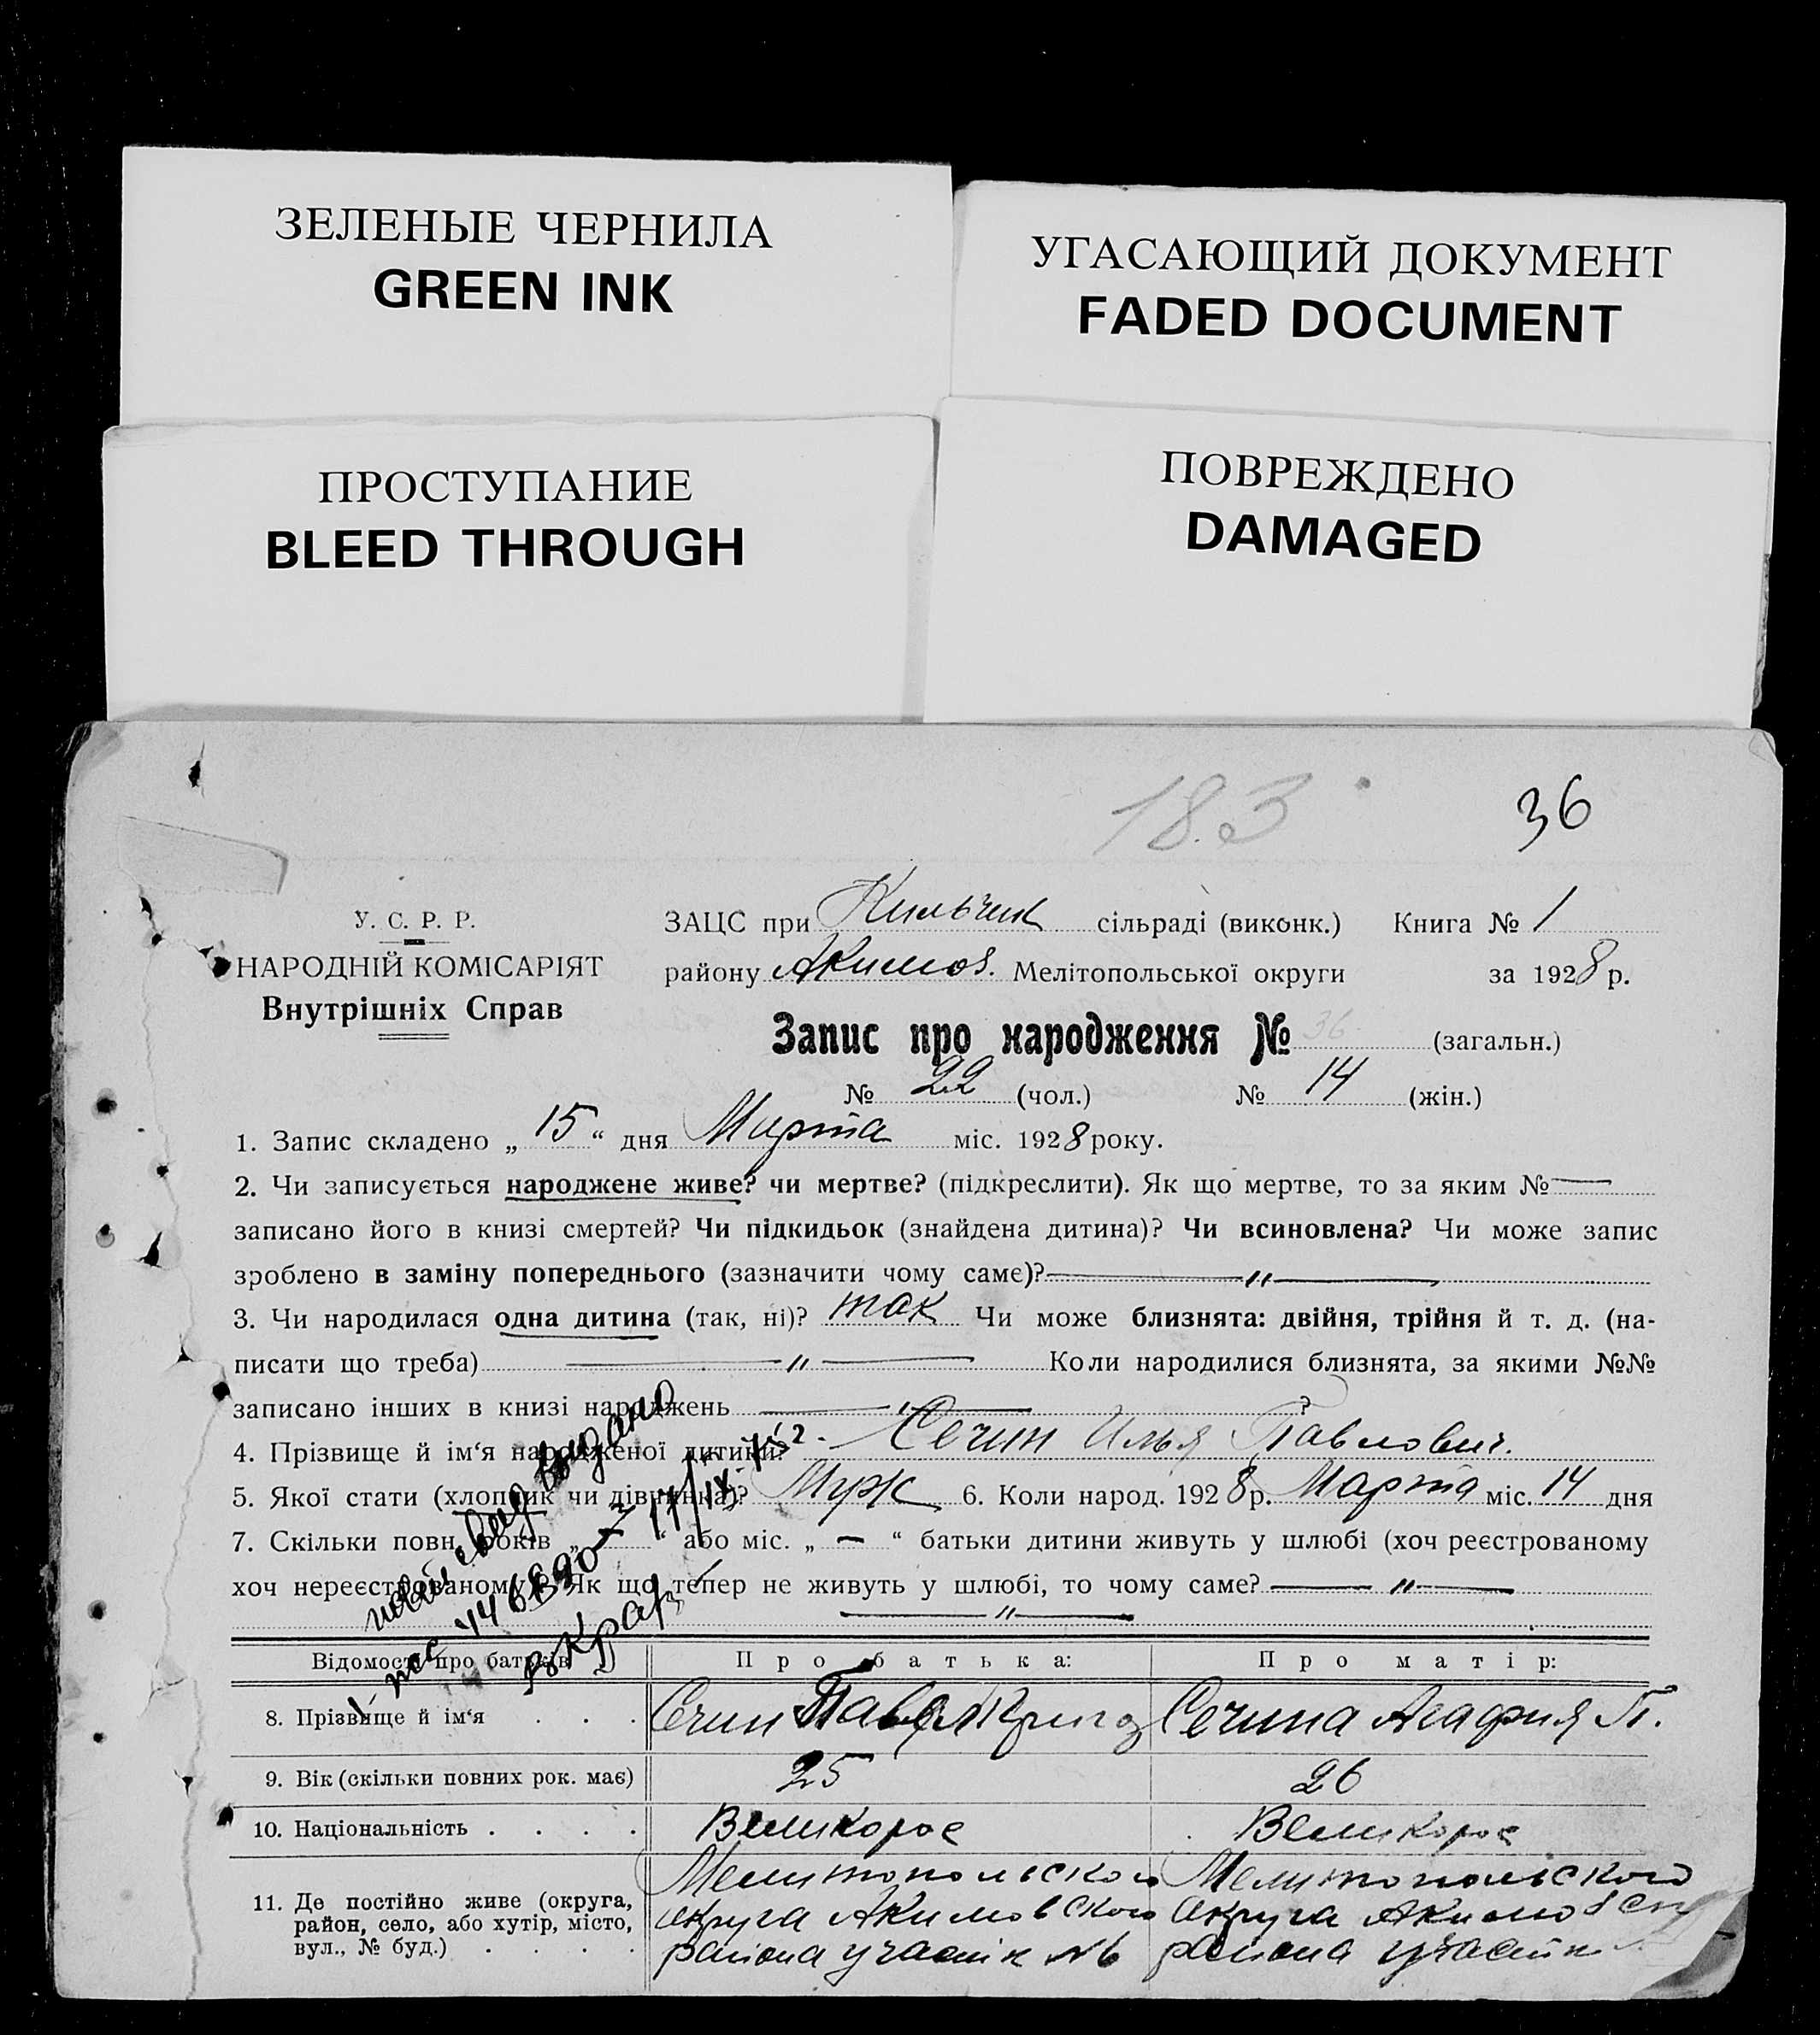 ЗЕЛЕНЫЕ ЧЕРНИЛА
GREEN INK
УГАСАЮЩИЙ ДОКУМЕНТ
FADED DOCUMENT
ПРОСТУПАНИЕ
BLEED THROUGH
ПОВРЕЖДЕНО
DAMAGED
183
36
У. С. Р. Р.
НАРОДНІЙ КОМІСАРІЯТ
Внутрішніх Справ
ЗАЦС при Кильчик сільраді (виконк.) Книга № 1
району Акимов. Мелітопольської округи за 1928 р.
Запис про народження № 36 (загальн.)
№ 22 (чол.) № 14 (жін.)
1. Запис складено „ 15 “ дня Марта міс. 1928 року.
2. Чи записується народжене живе? чи мертве? (підкреслити). Як що мертве, то за яким № —
записано його в книзі смертей? Чи підкидьок (знайдена дитина)? Чи всиновлена? Чи може запис
зроблено в заміну попереднього (зазначити чому саме)? — „ —
3. Чи народилася одна дитина (так, ні)? так Чи може близнята: двійня, трійня й т. д. (на-
писати що треба) — „ — Коли народилися близнята, за якими №№
записано інших в книзі народжень — „ — ?
4. Прізвище й ім‘я народженої дитини? Сечин Илья Павлович.
5. Якої стати (хлопчик чи дівчинка)? Муж 6. Коли народ. 1928 р. Марта міс. 14 дня
7. Скільки повн. років „ “ або міс. „ — “ батьки дитини живуть у шлюбі (хоч реєстрованому
хоч нереєстрованому)? Як що тепер не живуть у шлюбі, то чому саме? — „ —
— „ —
видано
17/IX
Відомості про батьків Про батька: Про матір:
8. Прізвище й ім‘я . . . Сечин Павел Сечина Агафия П.
9. Вік (скільки повних рок. має) 25 26
10. Національність . . . . Великорос Великорос
11. Де постійно живе (округа, район, село, або хутір, місто, вул., № буд.) . . . .
Мелитопольского Мелитопольского
округа Акимовского округа Акимовск
района участк №6 района участк